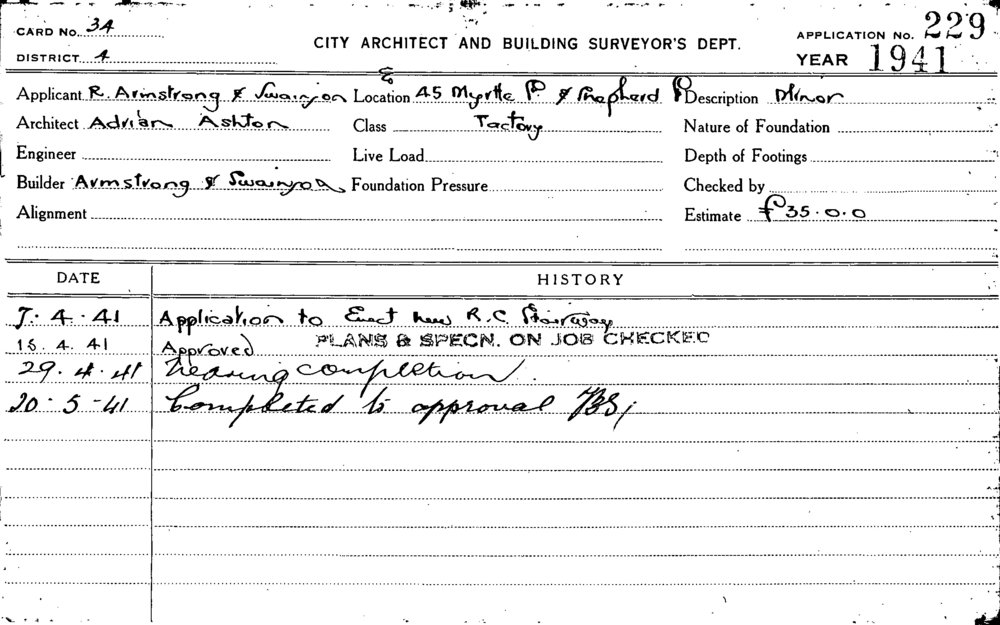 CARD No. 34
CITY ARCHITECT AND BUILDING SURVEYOR'S DEPT.
APPLICATION No. 229
DISTRICT 4
YEAR 1941
Applicant R. Armstrong & Swainson Location 45 Myrtle St & Shepherd St Description Minor
Architect Adrian Ashton Class Factory Nature of Foundation
Engineer Live Load Depth of Footings
Builder Armstrong & Swainson Foundation Pressure Checked by
Alignment Estimate £35.0.0
DATE HISTORY
7.4.41 Application to Erect new R.C. Stairway
15.4.41 Approved PLANS & SPECN. ON JOB CHECKED
29.4.41 Nearing completion.
20-5-41 Completed to approval